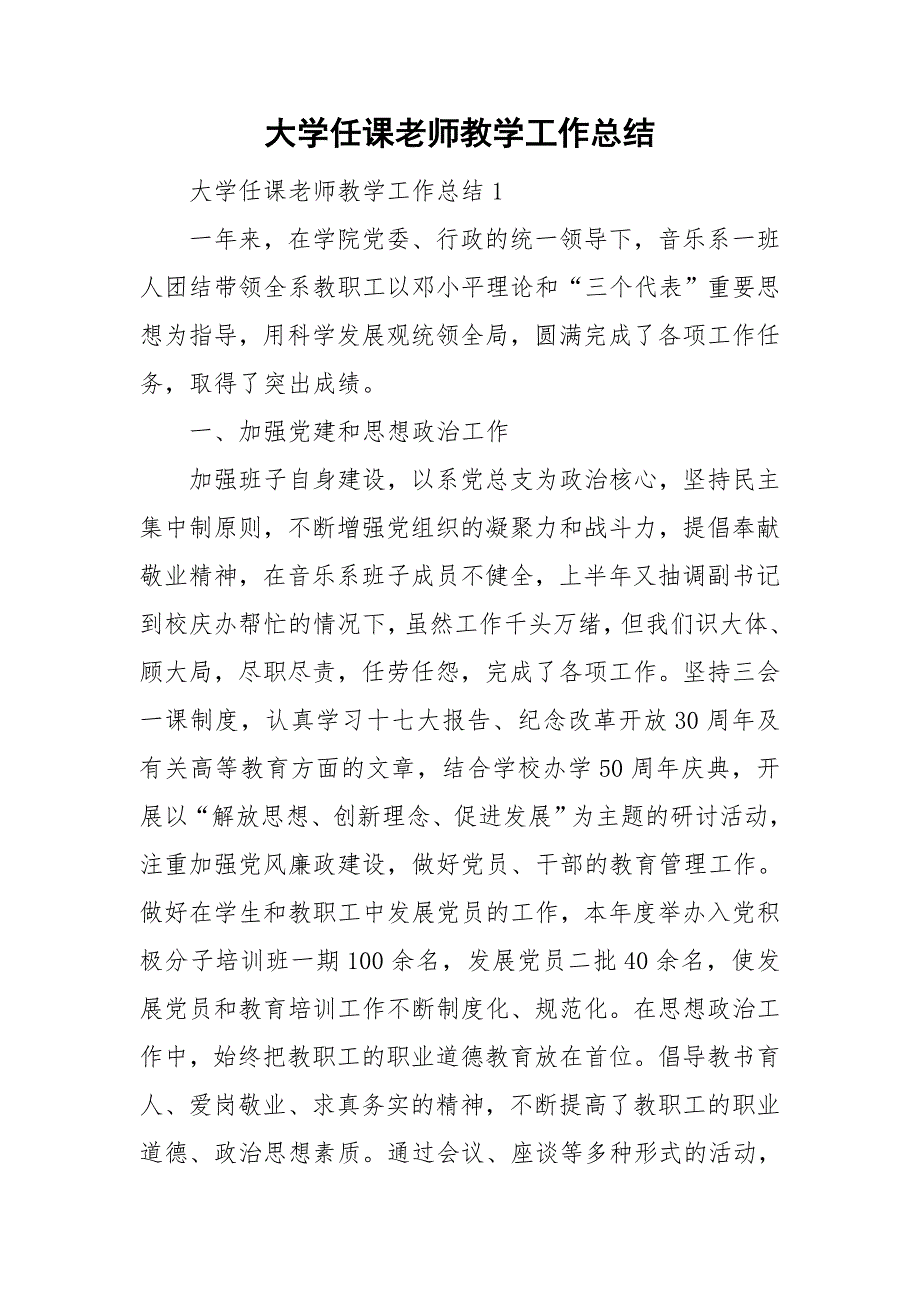 大学任课老师教学工作总结
大学任课老师教学工作总结 1
一年来，在学院党委、行政的统一领导下，音乐系一班
人团结带领全系教职工以邓小平理论和“三个代表”重要思
想为指导，用科学发展观统领全局，圆满完成了各项工作任
务，取得了突出成绩。
一、加强党建和思想政治工作
加强班子自身建设，以系党总支为政治核心，坚持民主
集中制原则，不断增强党组织的凝聚力和战斗力，提倡奉献
敬业精神，在音乐系班子成员不健全，上半年又抽调副书记
到校庆办帮忙的情况下，虽然工作千头万绪，但我们识大体、
顾大局，尽职尽责，任劳任怨，完成了各项工作。坚持三会
一课制度，认真学习十七大报告、纪念改革开放 30 周年及
有关高等教育方面的文章，结合学校办学 50 周年庆典，开
展以“解放思想、创新理念、促进发展”为主题的研讨活动，
注重加强党风廉政建设，做好党员、干部的教育管理工作。
做好在学生和教职工中发展党员的工作，本年度举办入党积
极分子培训班一期 100 余名，发展党员二批 40 余名，使发
展党员和教育培训工作不断制度化、规范化。在思想政治工
作中，始终把教职工的职业道德教育放在首位。倡导教书育
人、爱岗敬业、求真务实的精神，不断提高了教职工的职业
道德、政治思想素质。通过会议、座谈等多种形式的活动，